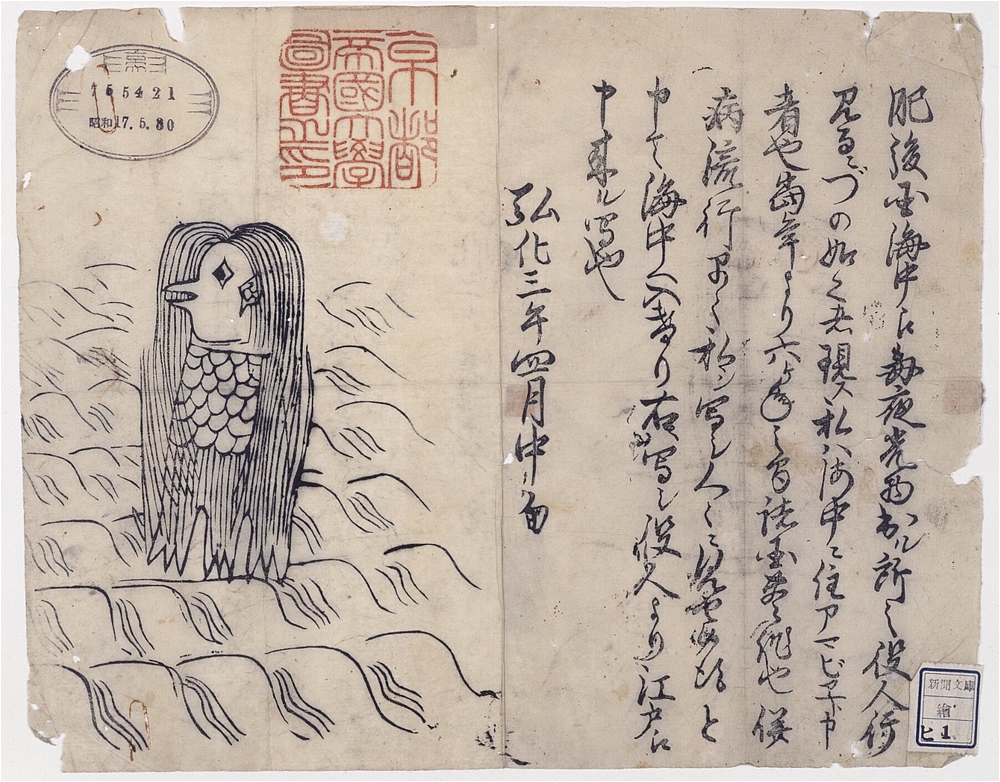 肥後国海中江毎夜光物出ル所之役人行
見るニづの如之者現ス私ハ海中ニ住アマビヱト申
者也當年より六ヶ年之間諸国豊作也併
病流行早々私ヲ写シ人々ニ見セ候得と
申て海中へ入けり右写シ役人より江戸江
申来ル写也
弘化三年四月中旬
京都
帝國大學
圖書之印
昭和17.5.30
新聞文庫
繪
ヒ1.